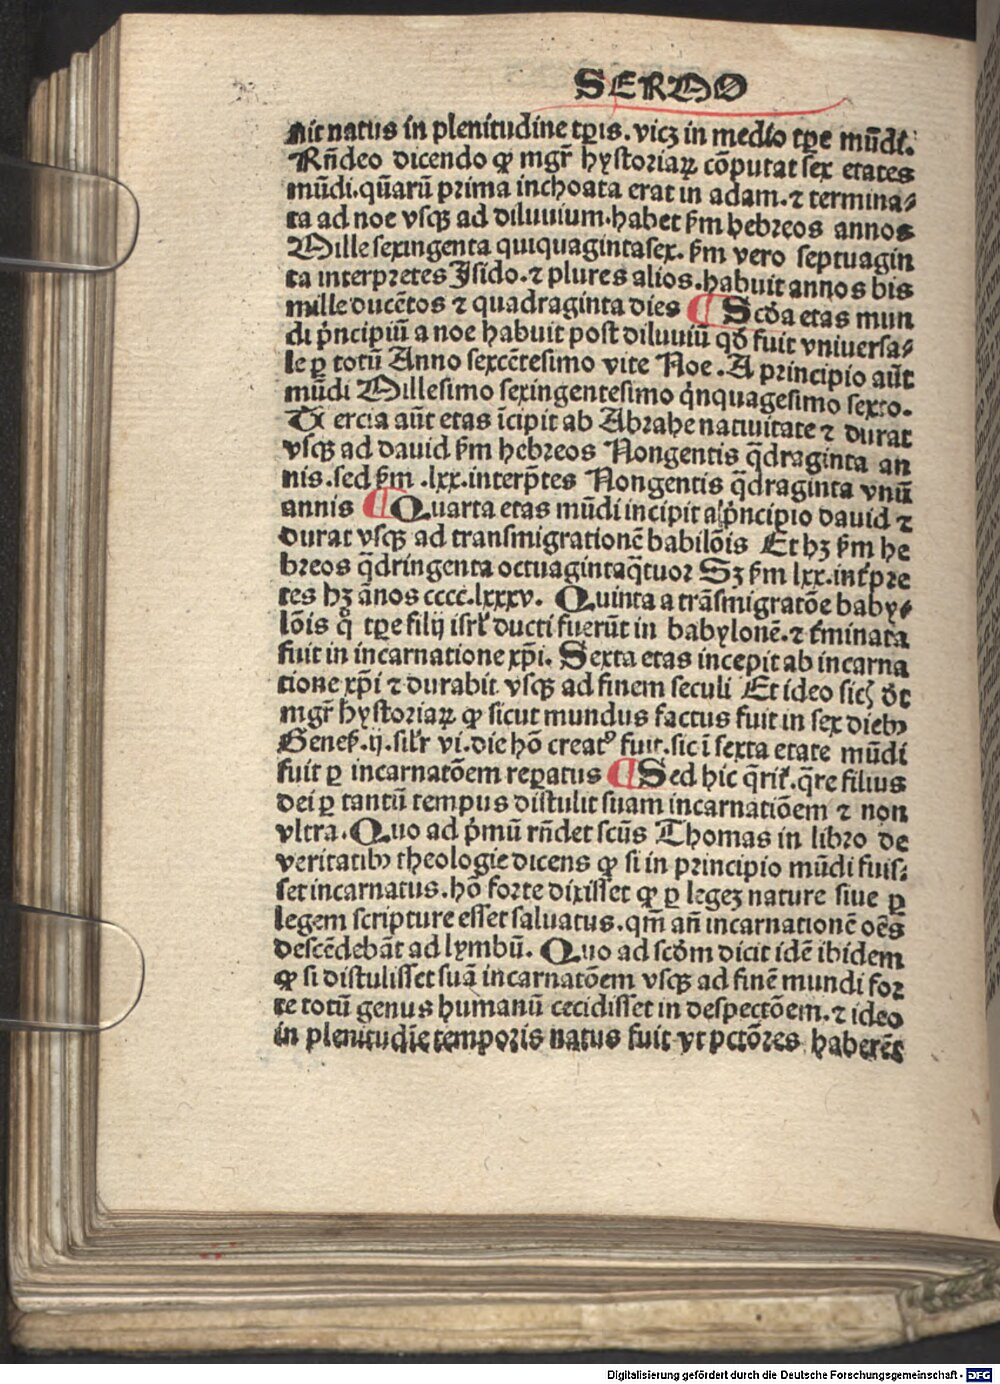 SERMO
nit natus in plenitudine tꝑis. vicꝫ in medio tꝑe mūdi.
Rn̄deo dicendo ꝙ mgr̄ hystoriaꝝ cōputat sex etates
mūdi. qͣarū prima inchoata erat in adam. ⁊ termina⸗
ta ad noe vsqꝫ ad diluuium. habet ẜm hebreos annos
Mille sexingenta quiquagintasex. ẜm vero septuagin
ta interpretes Isido. ⁊ plures alios. habuit annos bis
mille ducētos ⁊ quadraginta dies ¶ Scḋa etas mun
di p̄ncipiū a noe habuit post diluuiū qḋ fuit vniuersa⸗
le ꝑ totū Anno sexcētesimo vite Noe. A principio aūt
mūdi Millesimo sexingentesimo qͥnquagesimo sexto.
Tercia aūt etas īcipit ab Abrahe natiuitate ⁊ durat
vsqꝫ ad dauid ẜm hebreos Nongentis qͣdraginta an
nis. sed ẜm .lxx. interp̄tes Nongentis qͣdraginta vnū
annis ¶ Quarta etas mūdi incipit a p̄ncipio dauid ⁊
durat vsqꝫ ad transmigrationē babilōis Et hꝫ ẜm he
breos qͣdringenta octuagintaqͣtuor Sꝫ ẜm lxx. int̄pre
tes hꝫ ānos cccc.lxxxv. Quinta a trāsmigratōe baby⸗
lōis qͦ tꝑe filij isrl̄ ducti fuerūt in babylonē. ⁊ t̄minata
fuit in incarnatione xp̄i. Sexta etas incepit ab incarna
tione xp̄i ⁊ durabit vsqꝫ ad finem seculi Et ideo sic̄ ḋt
mgr̄ hystoriaꝝ ꝙ sicut mundus factus fuit in sex diebꝰ
Geneẜ. ij. silr̄ vi. die hō creatꝰ fuit. sic ī sexta etate mūdi
fuit ꝑ incarnatōem reꝑatus ¶ Sed hic qͣrit̄. qͣre filius
dei ꝑ tantū tempus distulit suam incarnatiōem ⁊ non
vltra. Quo ad p̄mū rn̄det scūs Thomas in libro de
veritatibꝰ theologie dicens ꝙ si in principio mūdi fuis⸗
set incarnatus. hō forte dixisset ꝙ ꝑ legeꝫ nature siue ꝑ
legem scripture esset saluatus. qm̄ an̄ incarnationē oēs
descēdebāt ad lymbū. Quo ad scḋm dicit idē ibidem
ꝙ si distulisset suā incarnatōem vsqꝫ ad finē mundi for
te totū genus humanū cecidisset in despectōem. ⁊ ideo
in plenitudīe temporis natus fuit vt pctōres haberēt
Digitalisierung gefördert durch die Deutsche Forschungsgemeinschaft - DFG